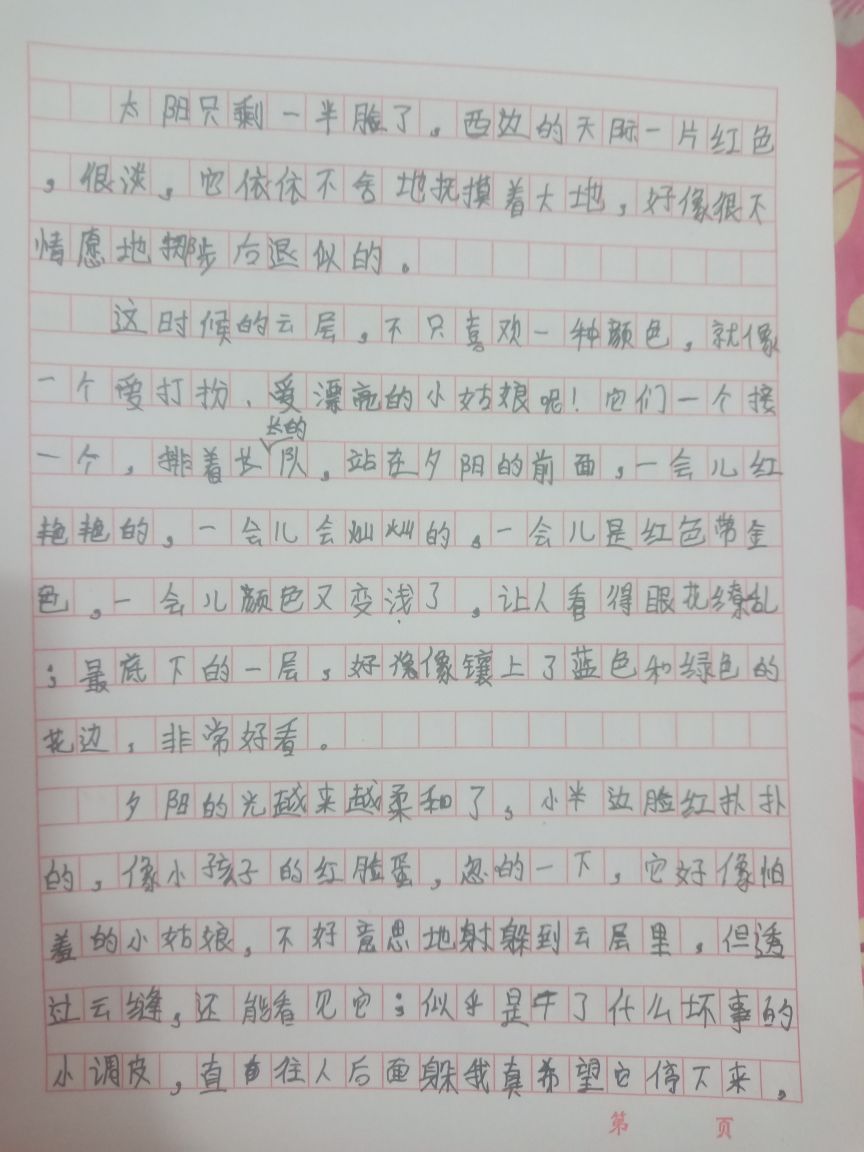 太阳只剩一半脸了，西边的天际一片红色
，很淡，它依依不舍地抚摸着大地，好像很不
情愿地挪步后退似的。
这时候的云层，不只喜欢一种颜色，就像
一个爱打扮、爱漂亮的小姑娘呢！它们一个接
长的
一个，排着长队，站在夕阳的前面，一会儿红
艳艳的，一会儿会灿灿的，一会儿是红色带金
色，一会儿颜色又变浅了，让人看得眼花缭乱
；最底下的一层，好像镶上了蓝色和绿色的
花边，非常好看。
夕阳的光越来越柔和了，小半边脸红扑扑
的，像小孩子的红脸蛋，忽的一下，它好像怕
羞的小姑娘，不好意思地躲到云层里，但透
过云缝，还能看见它；似乎是干了什么坏事的
小调皮，直往人后面躲我真希望它停下来，
第 页